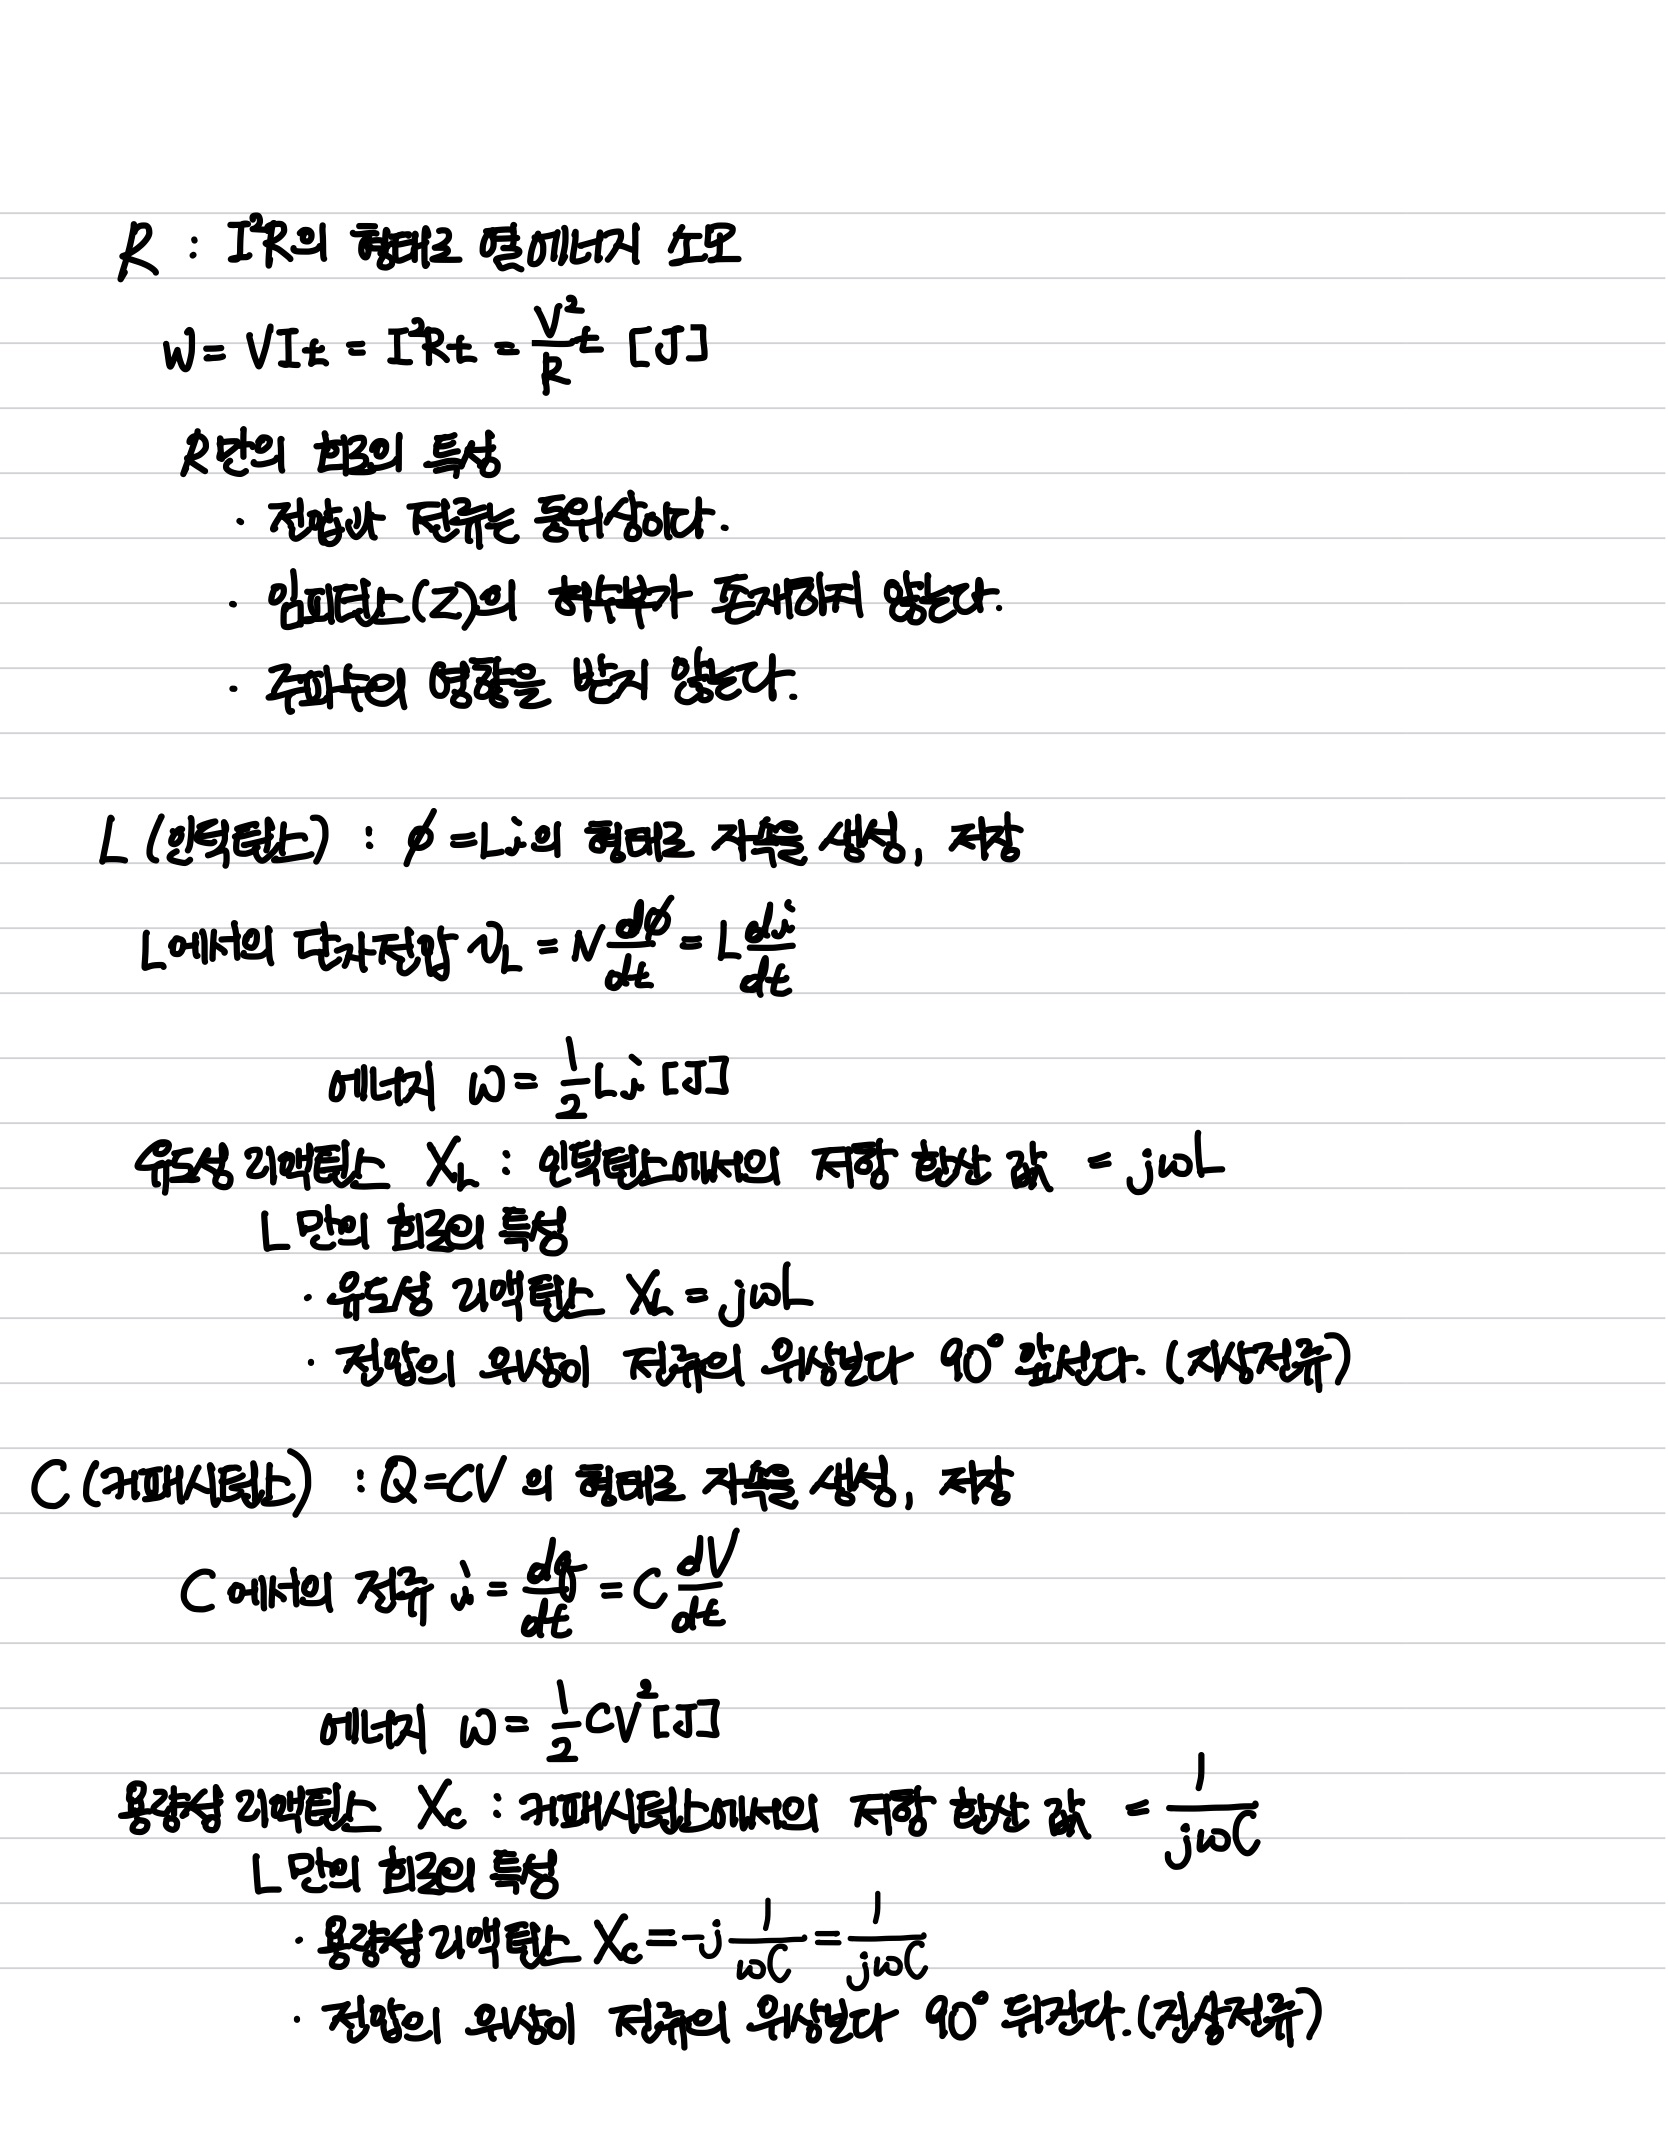 R : I²R의 형태로 열에너지 소모
W = VIt = I²Rt = V²/R t [J]
R만의 회로의 특성
· 전압과 전류는 동위상이다.
· 임피턴스(Z)의 허수부가 존재하지 않는다.
· 주파수의 영향을 받지 않는다.
L (인덕턴스) : ø = Li의 형태로 자속을 생성, 저장
L에서의 단자전압 v_L = N dø/dt = L di/dt
에너지 ω = 1/2 Li [J]
유도성 리액턴스 X_L : 인덕턴스에서의 저항 환산 값 = jωL
L만의 회로의 특성
· 유도성 리액턴스 X_L = jωL
· 전압의 위상이 전류의 위상보다 90° 앞선다. (지상전류)
C (커패시턴스) : Q = CV의 형태로 자속을 생성, 저장
C에서의 전류 i = dq/dt = C dV/dt
에너지 ω = 1/2 CV² [J]
용량성 리액턴스 X_C : 커패시턴스에서의 저항 환산 값 = 1/jωC
L만의 회로의 특성
· 용량성 리액턴스 X_C = -j 1/ωC = 1/jωC
· 전압의 위상이 전류의 위상보다 90° 뒤진다. (진상전류)